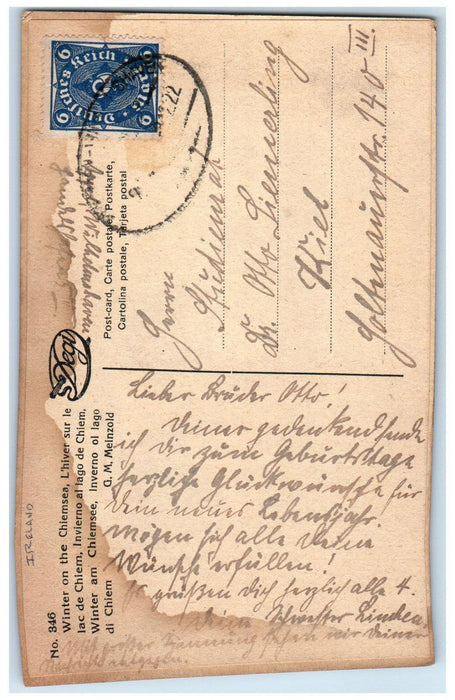 Deutsches Reich
6
6
Post-card, Carte postale, Postkarte,
Cartolina postale, Tarjeta postal
Herrn
Studienrat
Dr. Otto Liemerling
Kiel
Holtenauerstr. 140 III.
No. 346
Winter on the Chiemsea, L'hiver sur le
lac de Chiem, Invierno al lago de Chiem,
Winter am Chiemsee, Inverno ol lago
di Chiem G. M. Meinzold
IRELAND
Lieber Bruder Otto!
Deiner gedenkend sende
ich dir zum Geburtstage
herzliche Glückwünsche für
dem neues Lebensjahr.
Mögen sich alle deine
Wünsche erfüllen!
Es grüßen dich herzlich alle 4.
Deine Schwester
Mit großer Spannung sehen wir deiner
Nachricht entgegen.